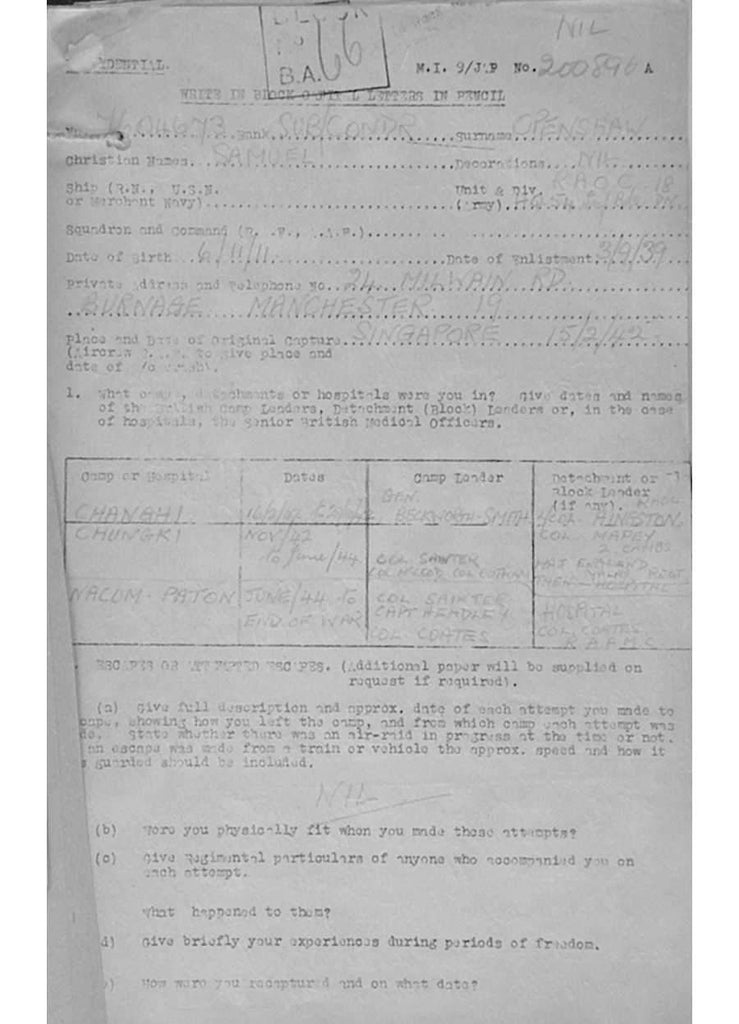 NIL
B.A. 66
DENTIAL. M.I. 9/JAP No. 200896 A
WRITE IN BLOCK CAPITAL LETTERS IN PENCIL
No. 7604673 Rank SUB CONDR Surname OPENSHAW
Christian Names. SAMUEL Decorations. NIL
Ship (R.N., U.S.N. Unit & Div. R.A.O.C. 18
or Merchant Navy) (Army).
Squadron and Command (R.A.F., A.A.F.)
Date of Birth 6/11/11 Date of Enlistment. 3/9/39
Private Address and Telephone No. 24 MILWAIN RD
BURNAGE MANCHESTER 19
Place and Date of Original Capture SINGAPORE 15/2/42
(Aircrew to give place and
date of
1. What camps, detachments or hospitals were you in? Give dates and names
of the British Camp Leaders, Detachment (Block) Leaders or, in the case
of hospitals, the Senior British Medical Officers.
Camp or Hospital Dates Camp Leader Detachment or
Block Leader
(if any). RAOC
CHANGHI BECKWORTH-SMITH
CHUNGKI NOV/42 COL MAPEY
to June/44 COL SAWTER 2 CAMBS
MAJ ENGLAND
THEN HOSPITAL
NACUM-PATON JUNE/44 to COL SAWTER HOSPITAL
END OF WAR CAPT HEADLEY COL COATES
COL COATES R.A.A.M.C.
ESCAPES OR ATTEMPTED ESCAPES. (Additional paper will be supplied on
request if required).
(a) Give full description and approx. date of each attempt you made to
cape, showing how you left the camp, and from which camp each attempt was
de. State whether there was an air-raid in progress at the time or not.
an escape was made from a train or vehicle the approx. speed and how it
guarded should be included.
NIL
(b) Were you physically fit when you made these attempts?
(c) Give Regimental particulars of anyone who accompanied you on
each attempt.
What happened to them?
d) Give briefly your experiences during periods of freedom.
) How were you recaptured and on what date?